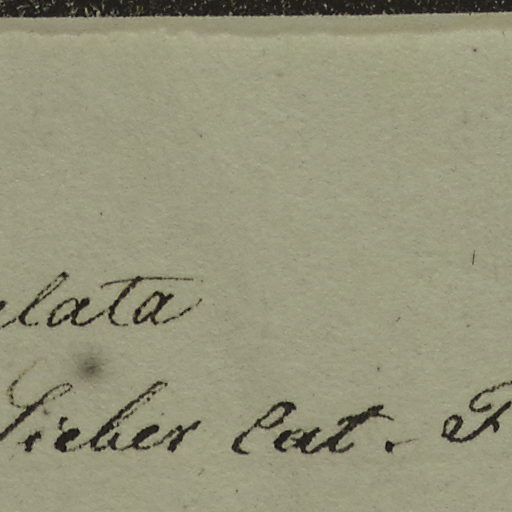 elata
Sieber Cat. F